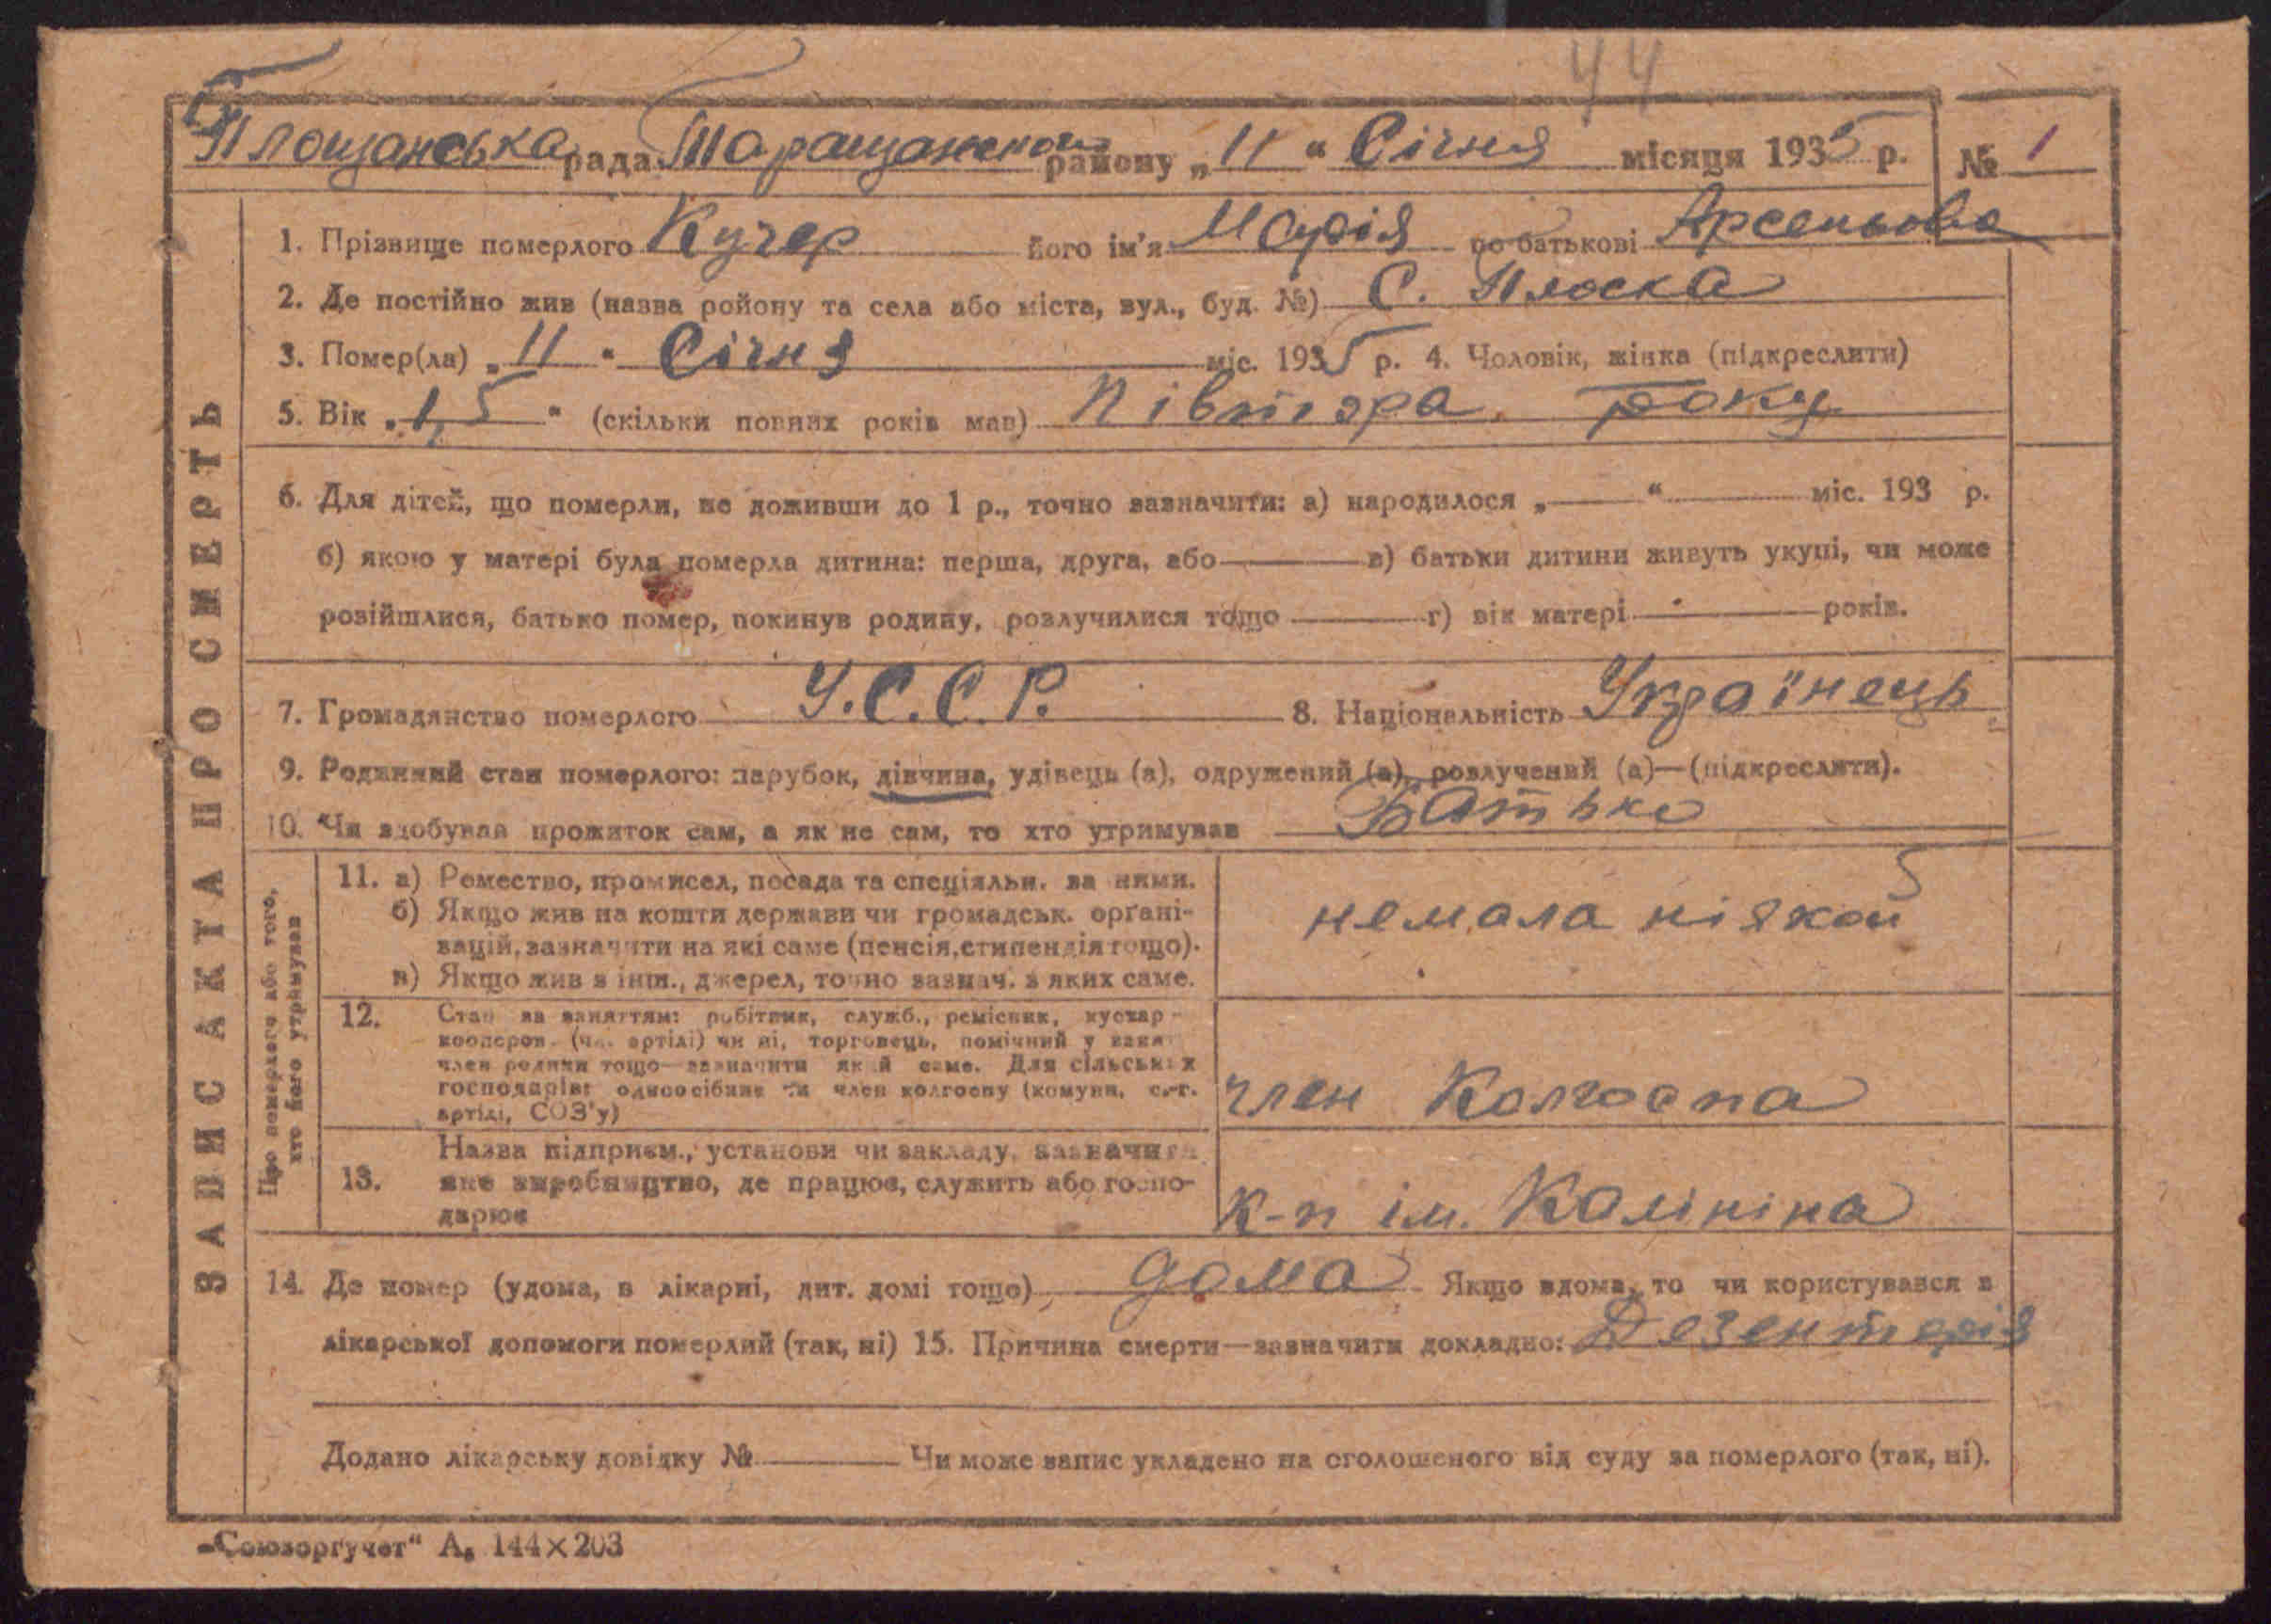 44
Площанська рада Таращанського району „11“ Січня місяця 1935 р. № 1
1. Прізвище померлого Кучер його ім'я Марія по батькові Арсеньова
2. Де постійно жив (назва ройону та села або міста, вул., буд. №) С. Плоска
3. Помер(ла) „11“ Січня міс. 1935 р. 4. Чоловік, жінка (підкреслити)
5. Вік „1,5“ (скільки повних років мав) Півтора року
6. Для дітей, що померли, не доживши до 1 р., точно зазначити: а) народилося „—“ міс. 193 р.
б) якою у матері була померла дитина: перша, друга, або — в) батьки дитини живуть укупі, чи може
розійшлися, батько помер, покинув родину, розлучилися тощо — г) вік матері — років.
7. Громадянство померлого У.С.С.Р. 8. Національність Українець
9. Родинний стан померлого: парубок, дівчина, удівець (а), одружений (а), розлучений (а)—(підкреслити).
10. Чи здобував прожиток сам, а як не сам, то хто утримував Батько
ЗАПИС АКТА ПРО СМЕРТЬ
Про померлого або того,
хто його утримував
11. а) Ремество, промисел, посада та спеціяльн. за ними.
б) Якщо жив на кошти держави чи громадськ. орґані-
зацій, зазначити на які саме (пенсія, стипендія тощо).
в) Якщо жив з інш., джерел, точно зазнач. з яких саме.
немала ніякой
12. Стан за заняттям: робітник, служб., ремісник, кустар -
кооперов. (чл. артілі) чи ні, торговець, помічний у занят
член родини тощо—зазначити який саме. Для сільських
господарів: одноосібник чи член колгоспу (комуни, с.-г.
артілі, СОЗ'у)
член Колгоспа
13. Назва підприєм., установи чи закладу, зазначити
яке виробництво, де працює, служить або госпо-
дарює
К-п ім. Калініна
14. Де помер (удома, в лікарні, дит. домі тощо) дома Якщо вдома, то чи користувався з
лікарської допомоги померлий (так, ні) 15. Причина смерти—зазначити докладно: Дезентерія
Додано лікарську довідку № — Чи може запис укладено на оголошеного від суду за померлого (так, ні).
„Союзоргучет“ А₅ 144×203